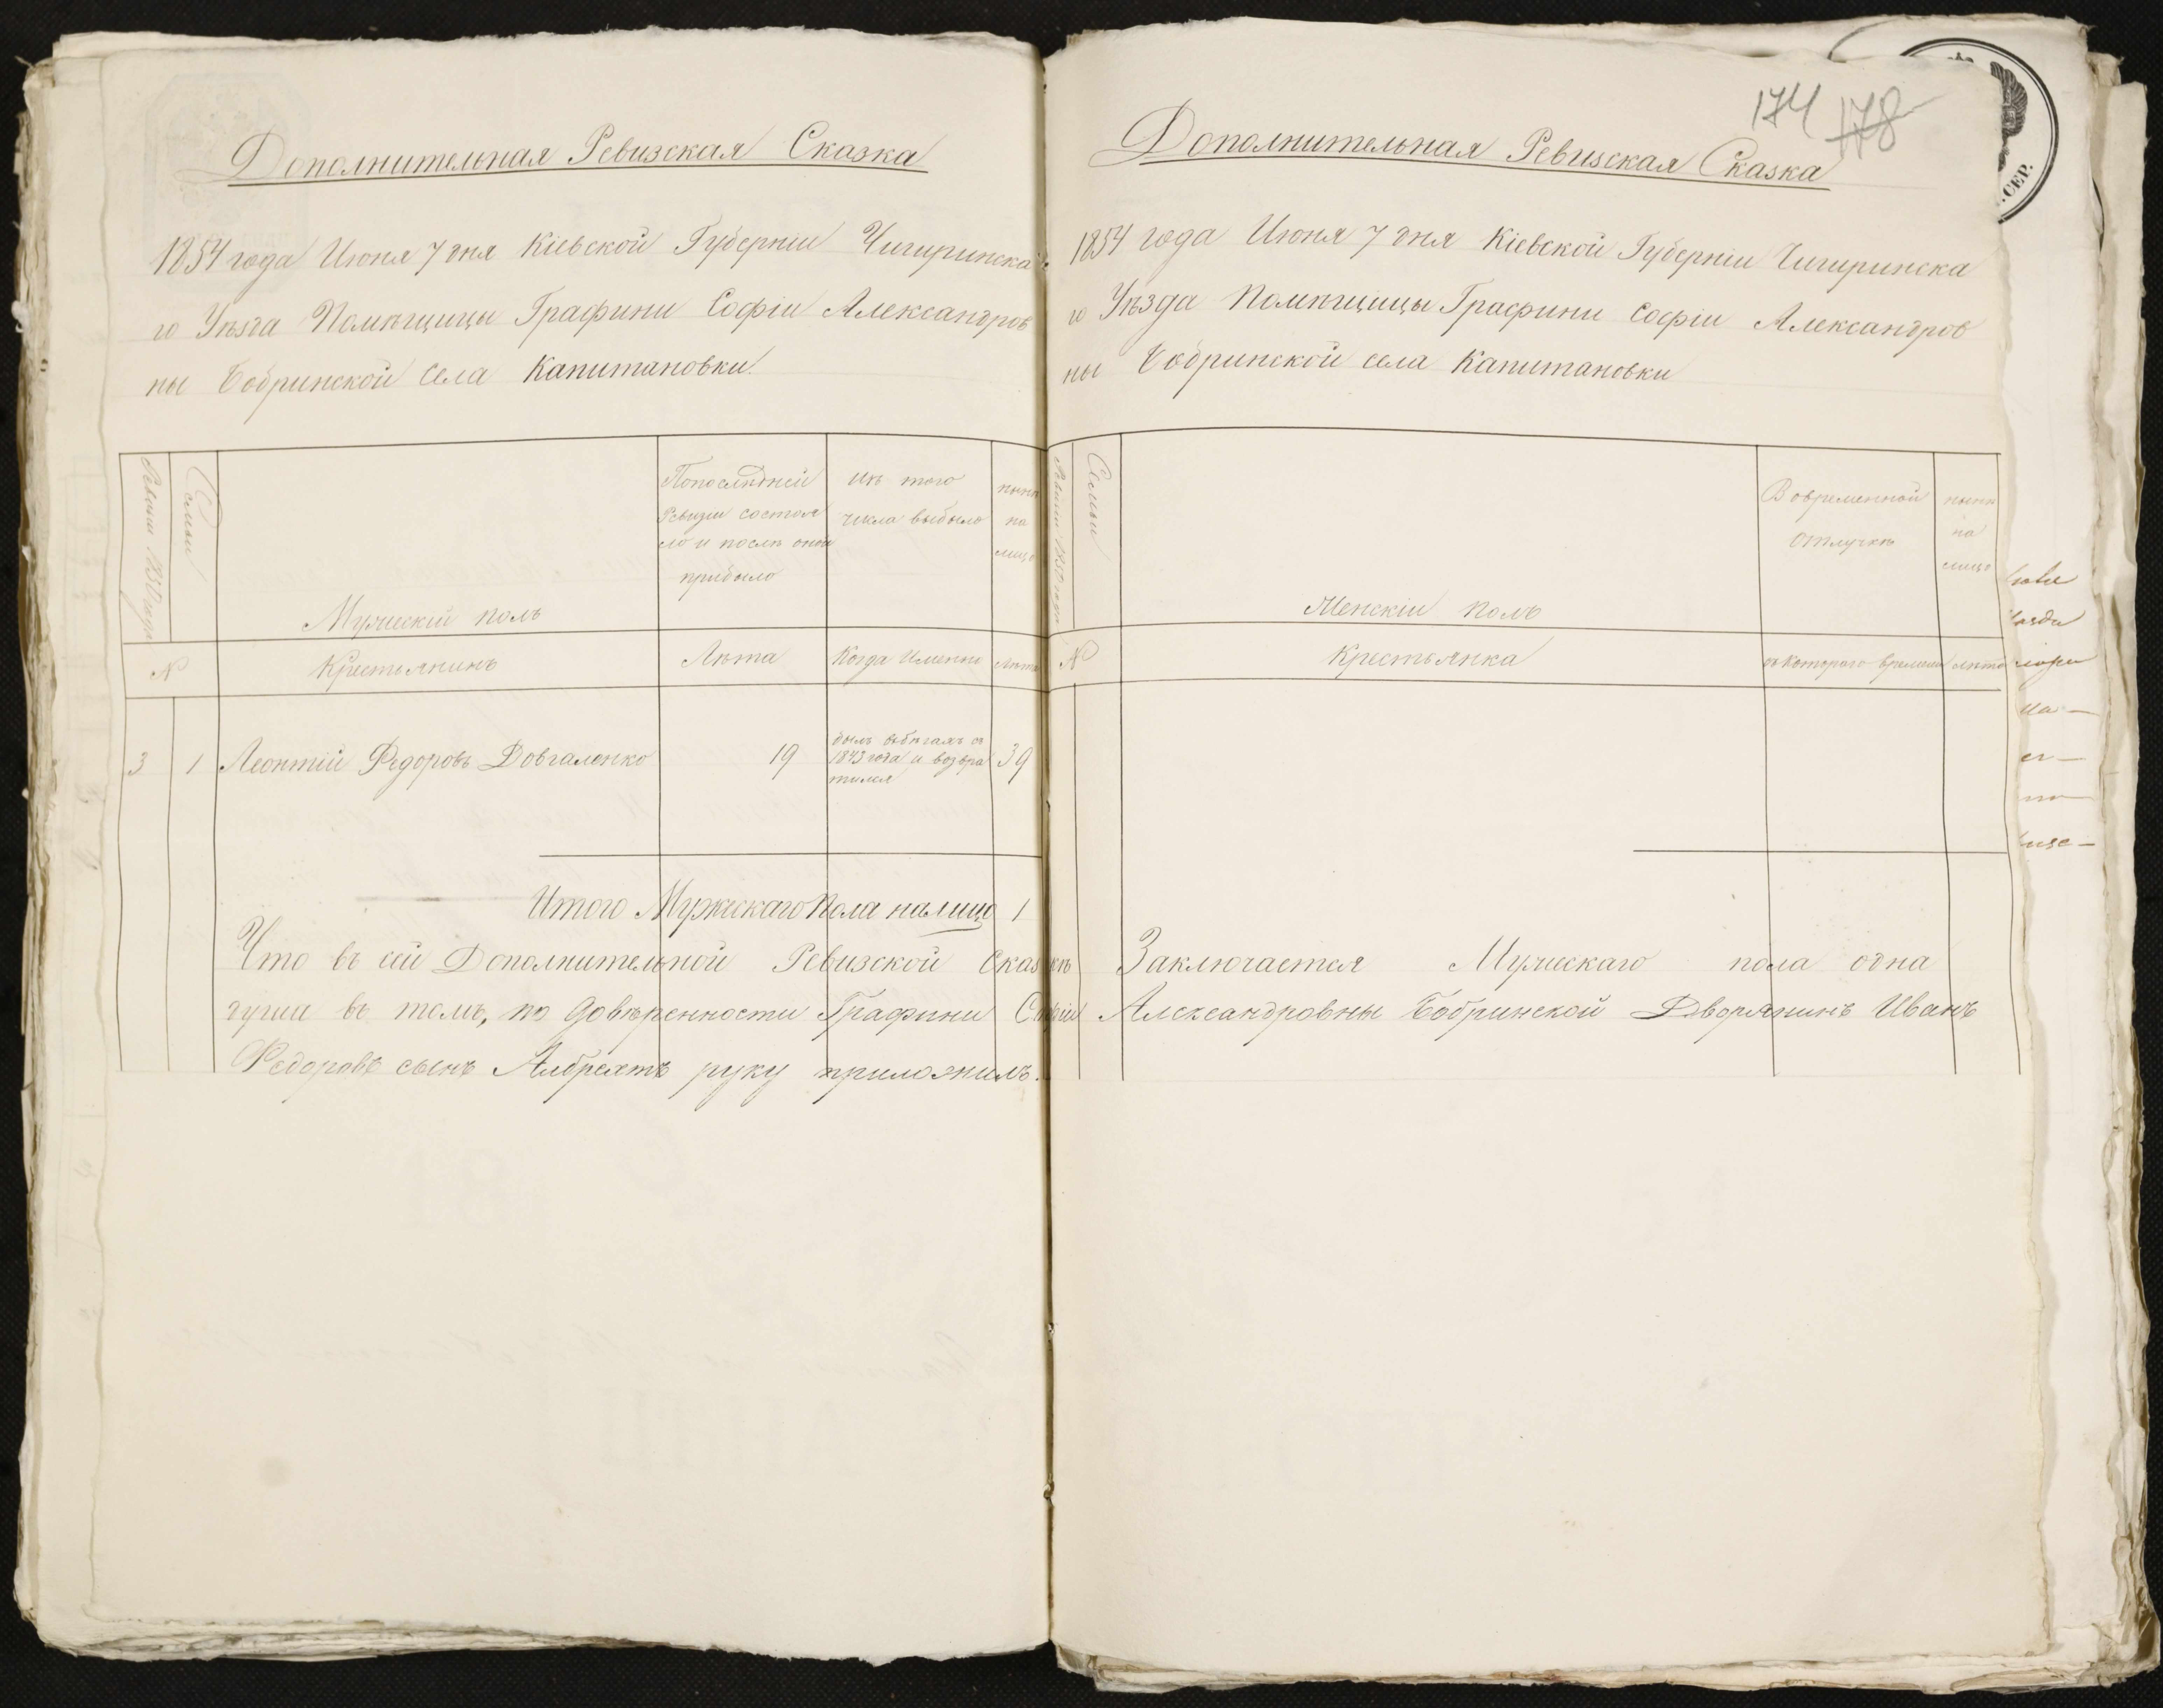 Дополнительная Ревизская Сказка
1854 года Июня 7 дня Кіевской Губерніи Чигиринска
го Уѣзда Помѣщицы Графини Софіи Александров
ны Бобринской Села Капитановки
Ревизіи 1850 года
Семьи
Мужескій полъ
По последней
Ревизіи состоя
ло и послѣ оной
прибыло
изъ того
числа выбыло
нынѣ
на
лицо
№
Крестьянинъ
Лѣта
Когда Именно
Лѣта
3 1 Леонтій Федоровъ Довгаленко 19
былъ въ бѣгахъ съ
1843 года и возвра
тился
39
Итого Мужескаго Пола на лицо 1
Что въ сей Дополнительной Ревизской Сказкѣ
душа въ томъ, по довѣренности Графини Софіи
Федоровъ сынъ руку приложилъ.
174 178
Дополнительная Ревизская Сказка
1854 года Июня 7 дня Кіевской Губерніи Чигиринска
го Уѣзда Помѣщицы Графини Софіи Александров
ны Бобринской села Капитановки
Ревизіи 1850 года
Семьи
Женскій полъ
Во временной
отлучкѣ
нынѣ
на
лицо
№
Крестьянка
съ котораго времени
лѣта
Заключается Мужескаго пола одна
Александровны Бобринской Дворянинъ Иванъ
.СЕР.